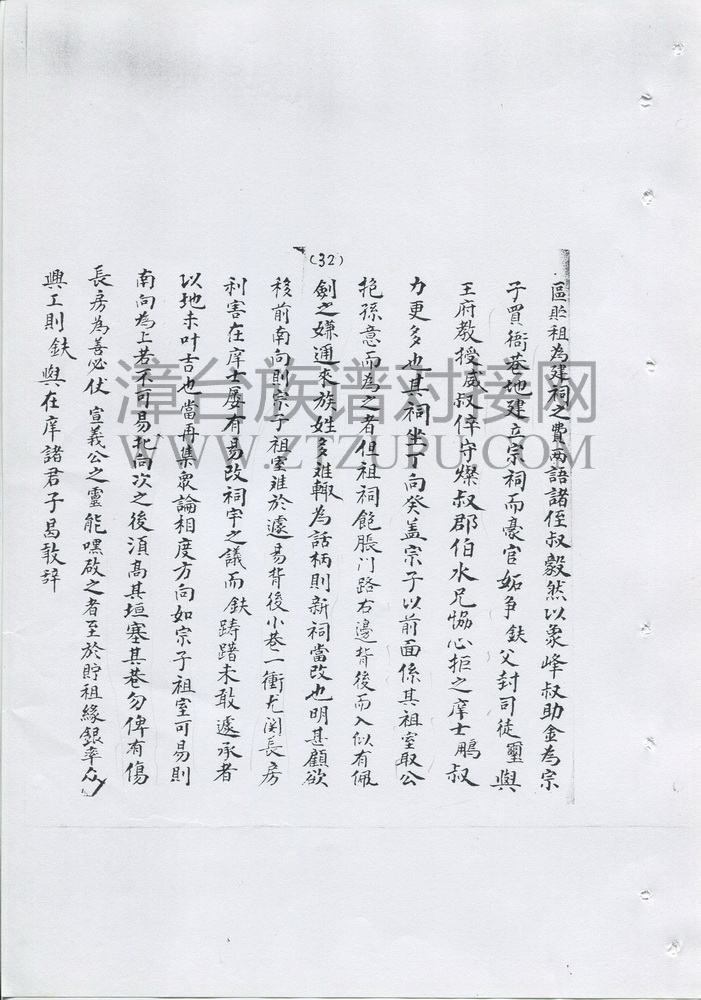 (32)
區貯祖為建祠之費兩語諸侄叔毅然以象峰叔助金為宗
子買衙巷地建立宗祠而豪官妬争鈇父封司徒璽與
王府教授威叔倅守燦叔郡伯水兄恊心拒之庠士鵬叔
力更多也其祠坐丁向癸盖宗子以前面係其祖室取公
抱孫意而為之者但祖祠飽脹门路右邊背後而入似有佩
劍之嫌通來族姓多雖輙為話柄則新祠當改也明甚顧欲
移前南向則宗子祖室难於遽易背後小巷一衝尤関長房
利害在庠士屡有易改祠宇之議而鈇踌躇未敢遽承者
以地未叶吉也當再集衆論相度方向如宗子祖室可易則
南向為上若不可易北向次之後湏髙其垣塞其巷勿俾有傷
長房為善必伏宣義公之靈能嘿啟之者至於貯祖緣銀率众
興工則鈇與在庠諸君子曷敢辞
漳台族谱对接网
WWW.ZTZUPU.COM